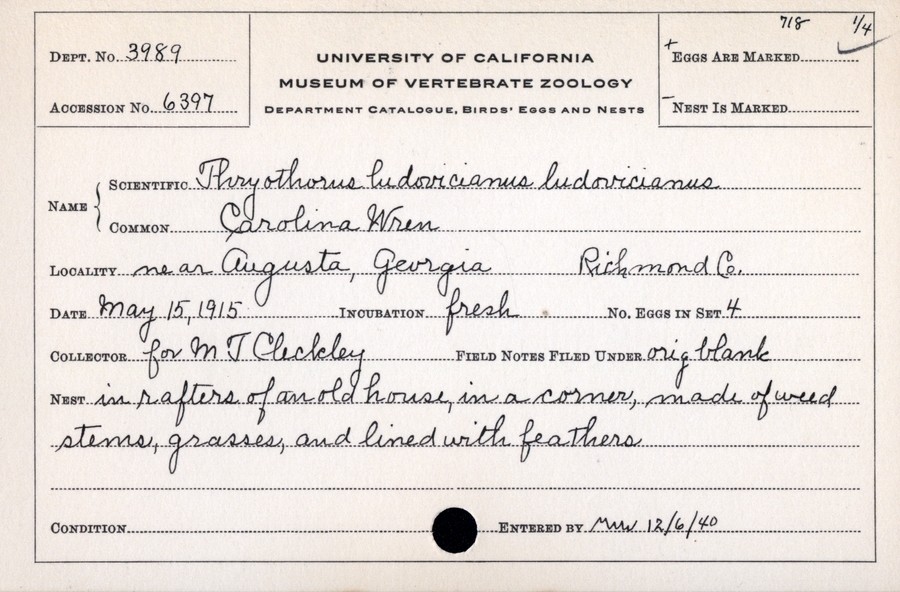 718 1/4
Dept. No. 3989
UNIVERSITY OF CALIFORNIA
+ Eggs Are Marked
MUSEUM OF VERTEBRATE ZOOLOGY
Accession No. 6397
Department Catalogue, Birds' Eggs and Nests
- Nest Is Marked
Name { Scientific Thryothorus ludovicianus ludovicianus
Common Carolina Wren
Locality near Augusta, Georgia Richmond Co.
Date May 15, 1915 Incubation fresh No. Eggs in Set 4
Collector for M T Cleckley Field Notes Filed Under orig blank
Nest in rafters of an old house, in a corner, made of weed
stems, grasses, and lined with feathers
Condition Entered by 12/6/40